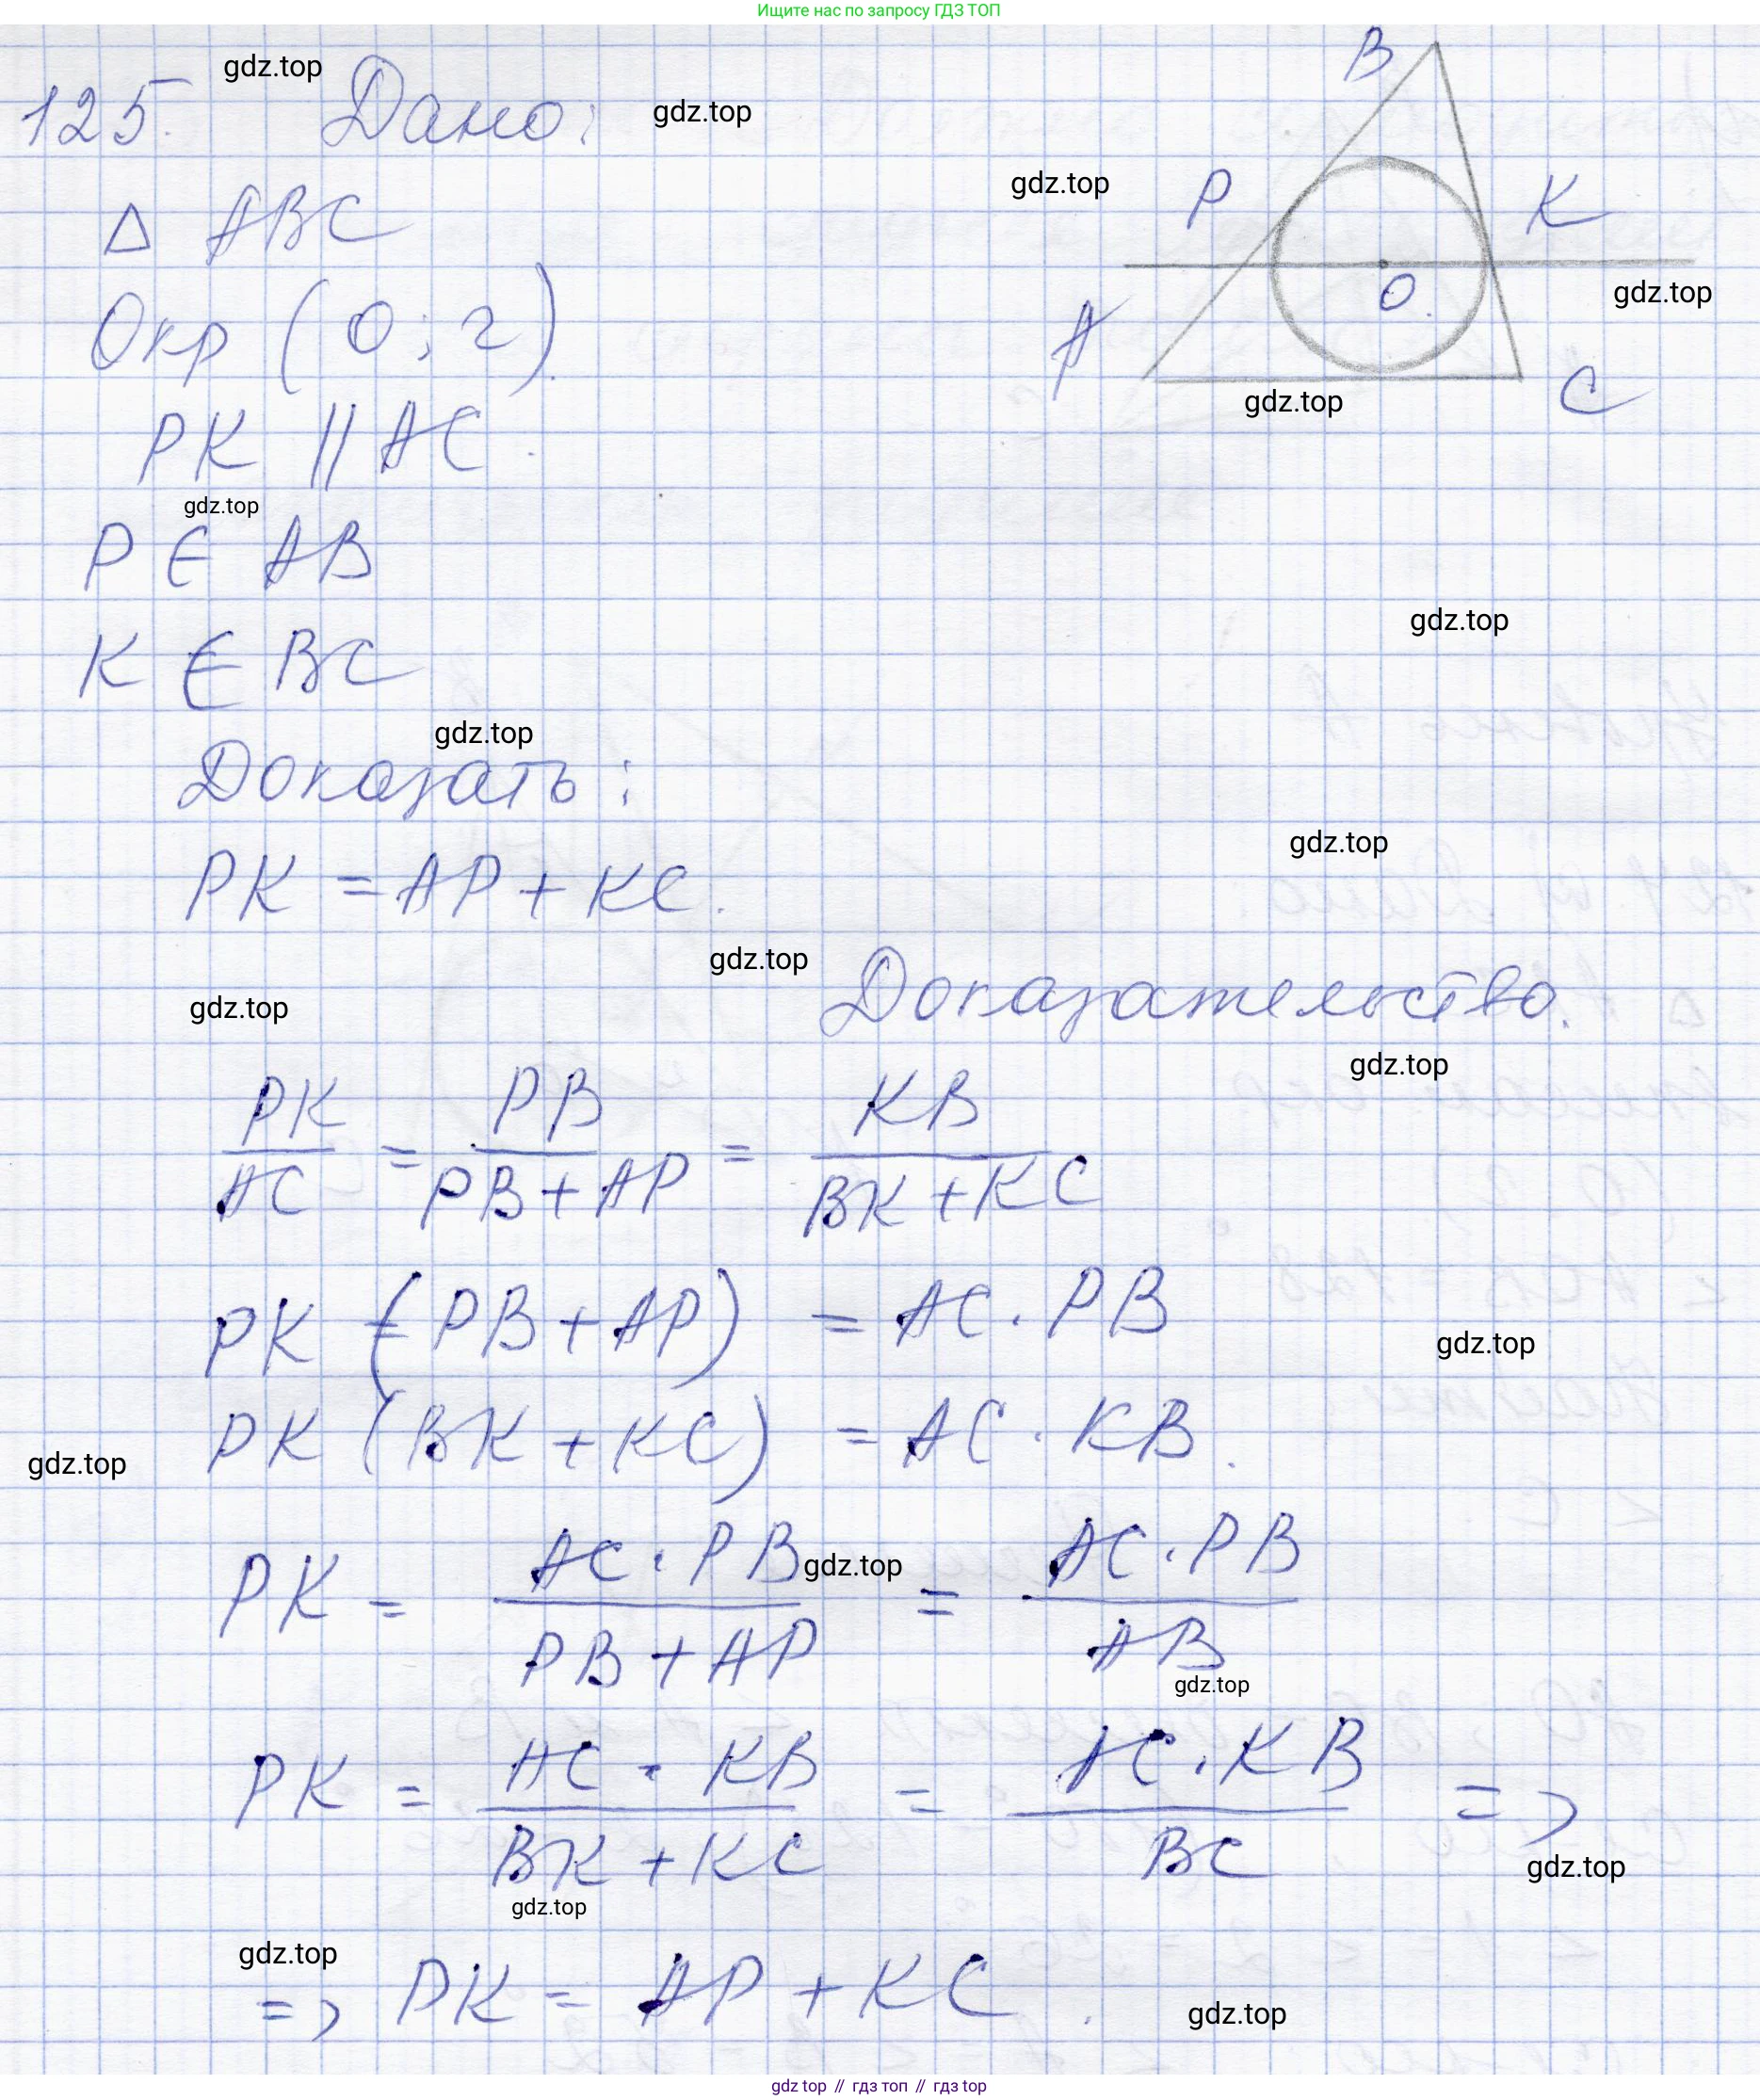 Ищите нас по запросу ГДЗ ТОП
125. Дано:
gdz.top
gdz.top
B
gdz.top
P
K
O
gdz.top
A
C
gdz.top
Δ ABC
Окр (O; r).
PK || AC.
gdz.top
P ∈ AB
K ∈ BC
gdz.top
gdz.top
Доказать:
PK = AP + KC.
gdz.top
gdz.top
gdz.top
Доказательство.
gdz.top
PK/AC = PB/(PB + AP) = KB/(BK + KC)
PK (PB + AP) = AC · PB
gdz.top
PK (BK + KC) = AC · KB.
gdz.top
PK = AC · PB/(PB + AP) = AC · PB/AB
gdz.top
gdz.top
PK = AC · KB/(BK + KC) = AC · KB/BC =>
gdz.top
gdz.top
gdz.top
=> PK = AP + KC.
gdz.top
gdz top // гдз топ // гдз top